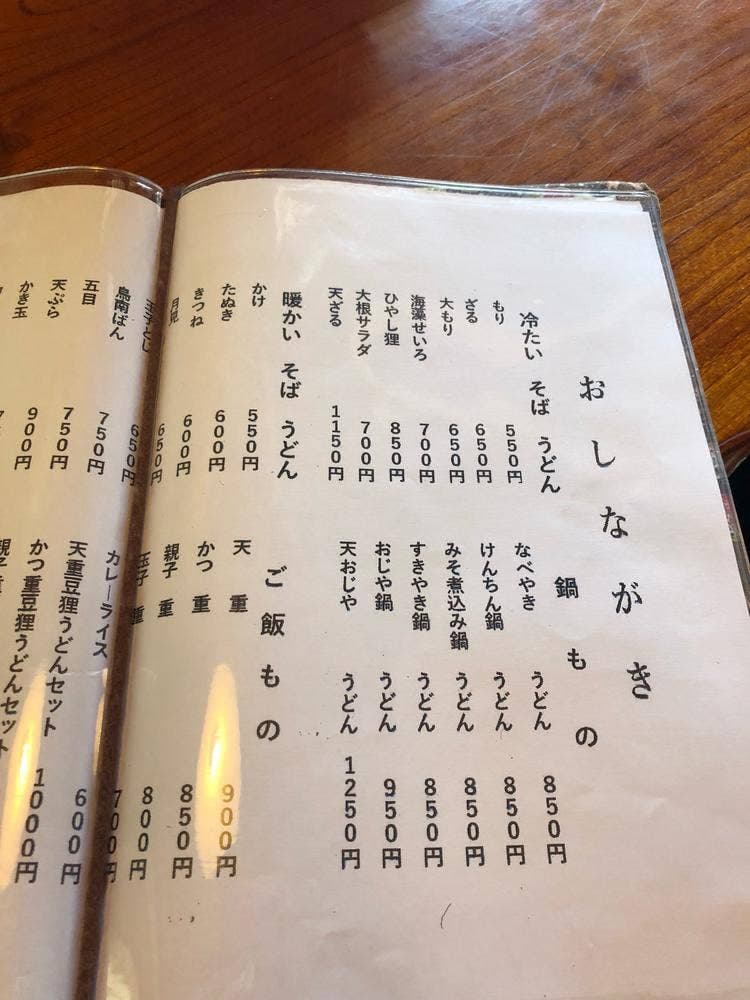 おしながき
冷たい そば うどん
もり 550円
ざる 650円
大もり 650円
海藻せいろ 700円
ひやし狸 850円
大根サラダ 700円
天ざる 1150円
暖かい そば うどん
かけ 550円
たぬき 600円
きつね 600円
月見 650円
玉子とじ 650円
鳥南ばん 750円
五目 750円
天ぷら 900円
かき玉
鍋もの
なべやき うどん 850円
けんちん鍋 うどん 850円
みそ煮込み鍋 うどん 850円
すきやき鍋 うどん 850円
おじや鍋 うどん 950円
天おじや うどん 1250円
ご飯もの
天 重 900円
かつ 重 850円
親子 重 800円
玉子 重 700円
カレーライス 600円
天重豆狸うどんセット 1000円
かつ重豆狸うどんセット
親子重 うどんセット